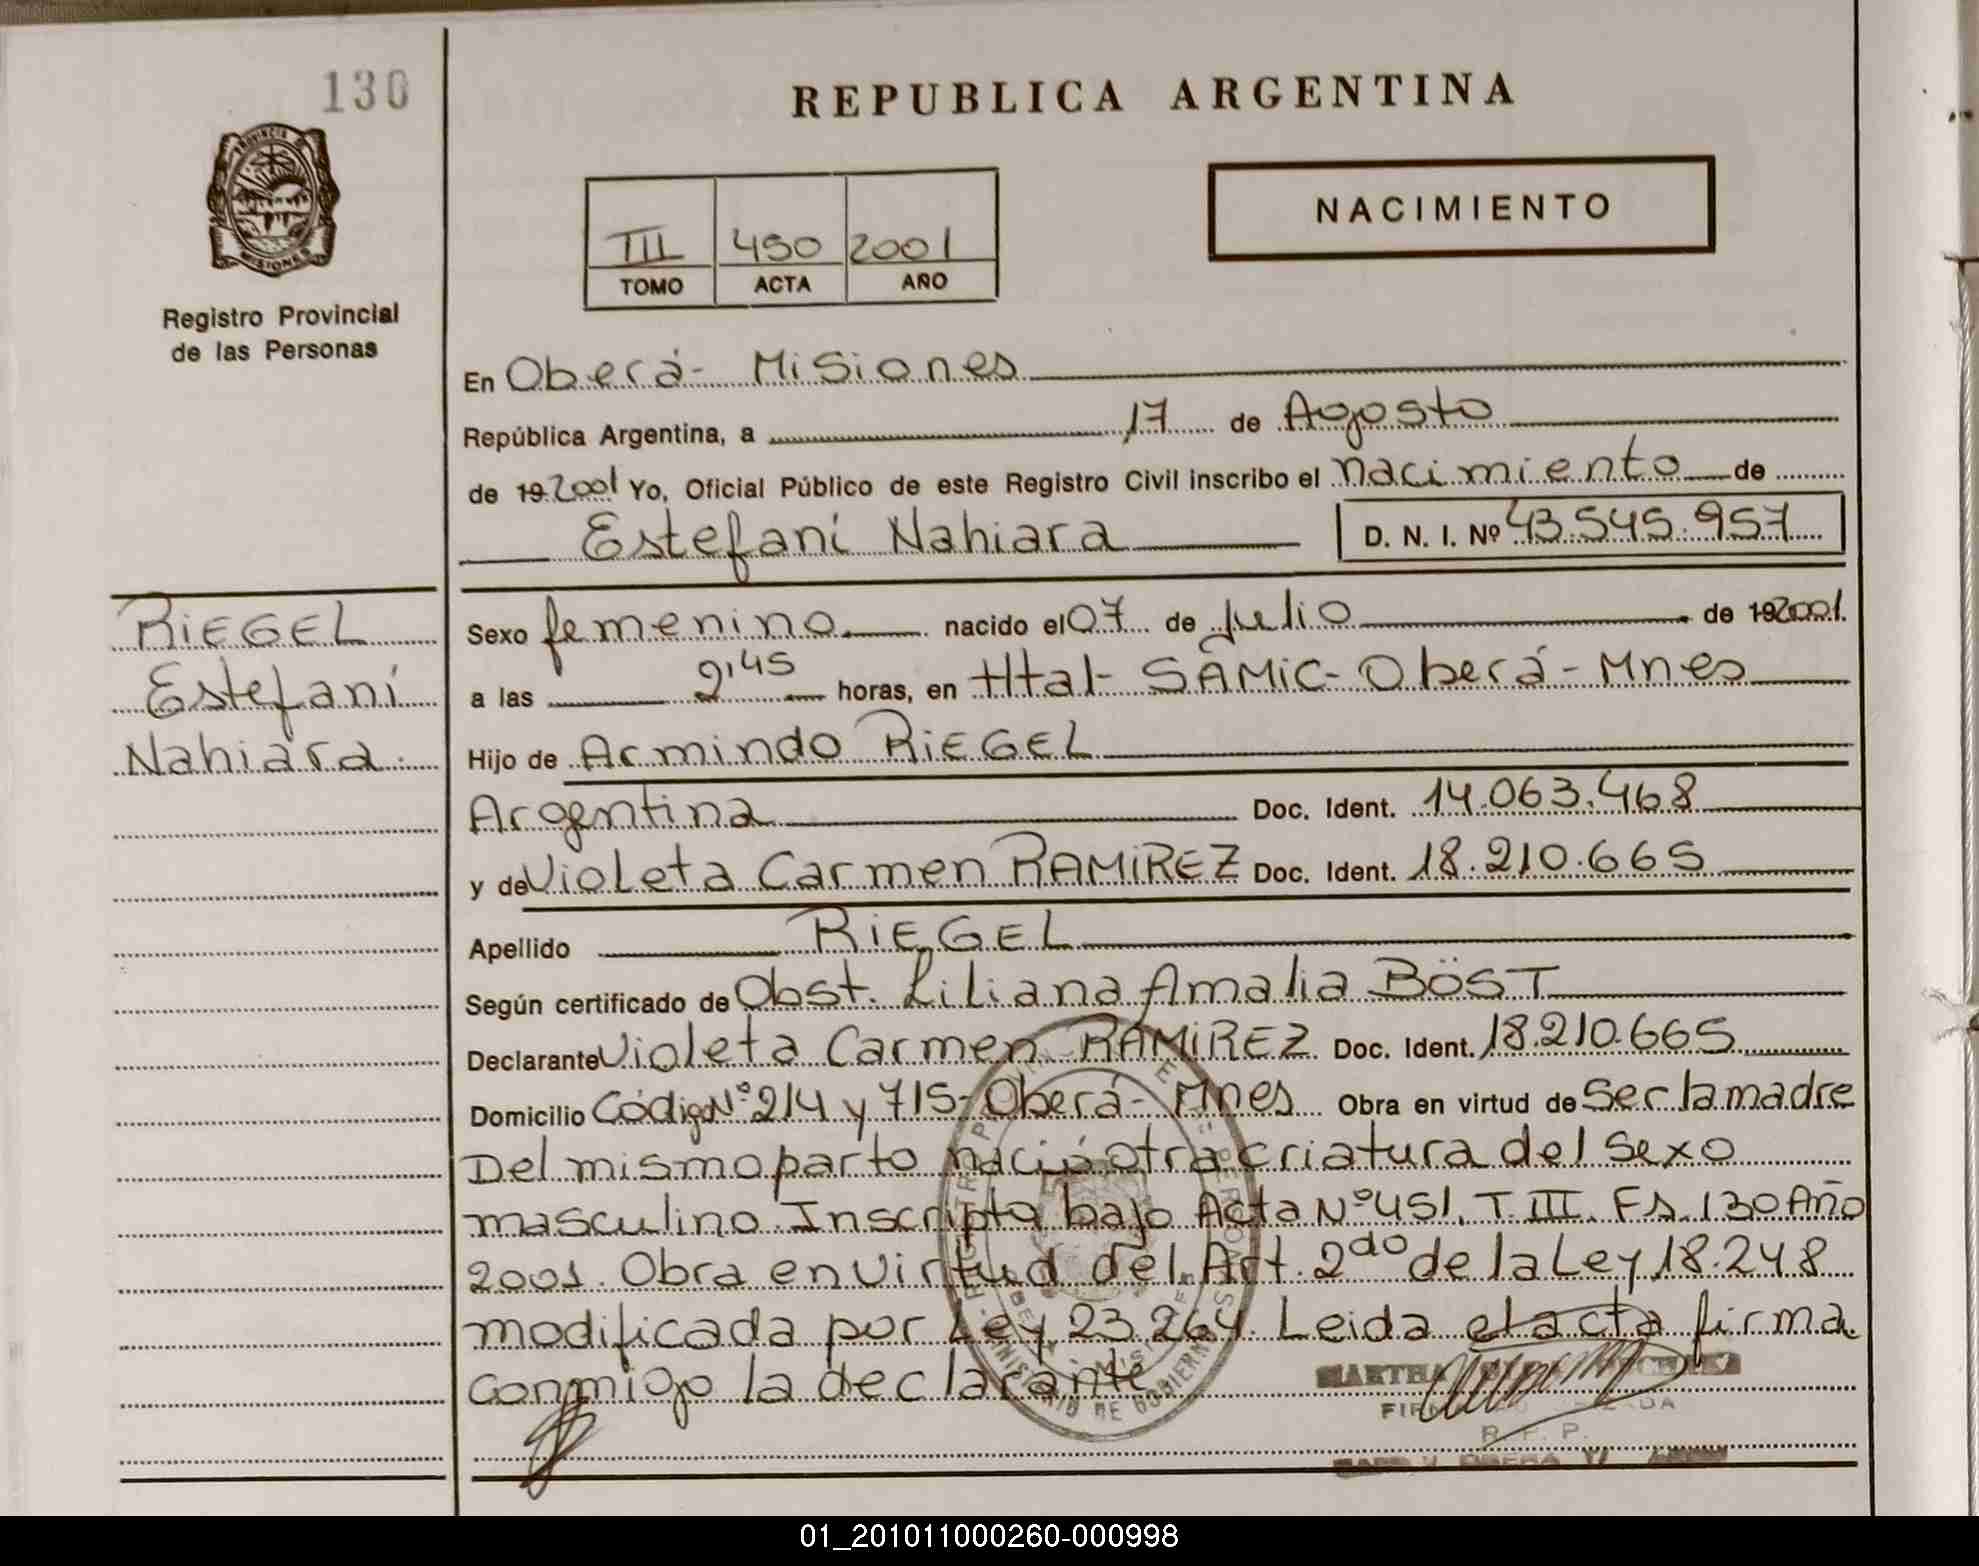 130
REPUBLICA ARGENTINA
NACIMIENTO
III 450 2001
TOMO ACTA AÑO
PROVINCIA
MISIONES
Registro Provincial
de las Personas
En Oberá - Misiones
República Argentina, a 17 de Agosto
de 19 2001 Yo, Oficial Público de este Registro Civil inscribo el nacimiento de
Estefani Nahiara D. N. I. Nº 43.545.957
RIEGEL
Estefaní
Nahiara.
Sexo femenino nacido el 07 de Julio de 19 2001.
a las 2'45 horas, en Htal - SAMIC - Oberá - Mnes
Hijo de Armindo RIEGEL
Argentina Doc. Ident. 14.063.468
y de Violeta Carmen RAMIREZ Doc. Ident. 18.210.665
Apellido RIEGEL
Según certificado de Obst. Liliana Amalia BÖST
Declarante Violeta Carmen RAMIREZ Doc. Ident. 18.210.665
Domicilio Código Nº 214 y 715 - Oberá - Mnes Obra en virtud de Ser la madre
Del mismo parto nació otra criatura del sexo
masculino. Inscripta bajo Acta Nº 451. T. III. Fs. 130 Año
2001. Obra en virtud del Art. 2do de la Ley 18.248
modificada por Ley 23.264. Leida el acta firma
conmigo la declarante
MARTHA
R. P. P.
01_201011000260-000998